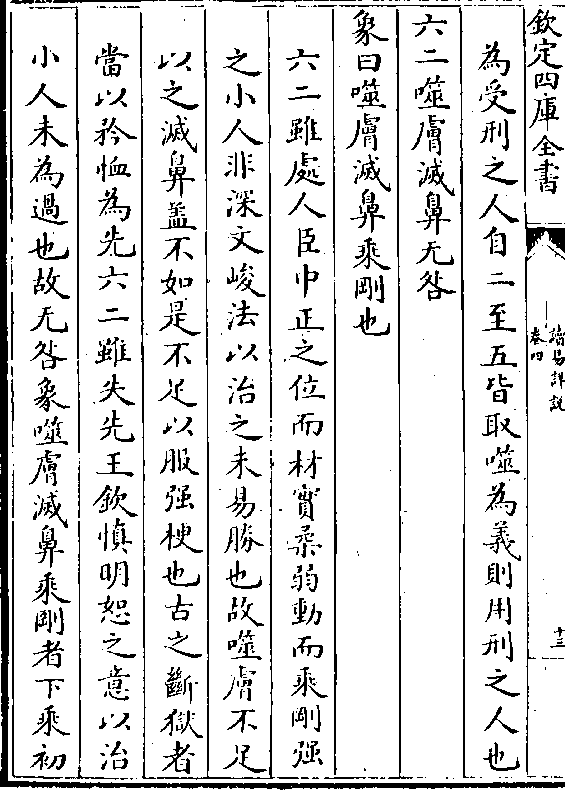 欽定四庫全書
讀易詳說
卷四
十三
為受刑之人自二至五皆取噬為義則用刑之人也
六二噬膚滅鼻无咎
象曰噬膚滅鼻乘剛也
六二雖處人臣中正之位而材實柔弱動而乘剛强
之小人非深文峻法以治之未易勝也故噬膚不足
以之滅鼻盖不如是不足以服强梗也古之斷獄者
當以矜恤為先六二雖失先王欽慎明恕之意以治
小人未為過也故无咎象噬膚滅鼻乘剛者下乘初